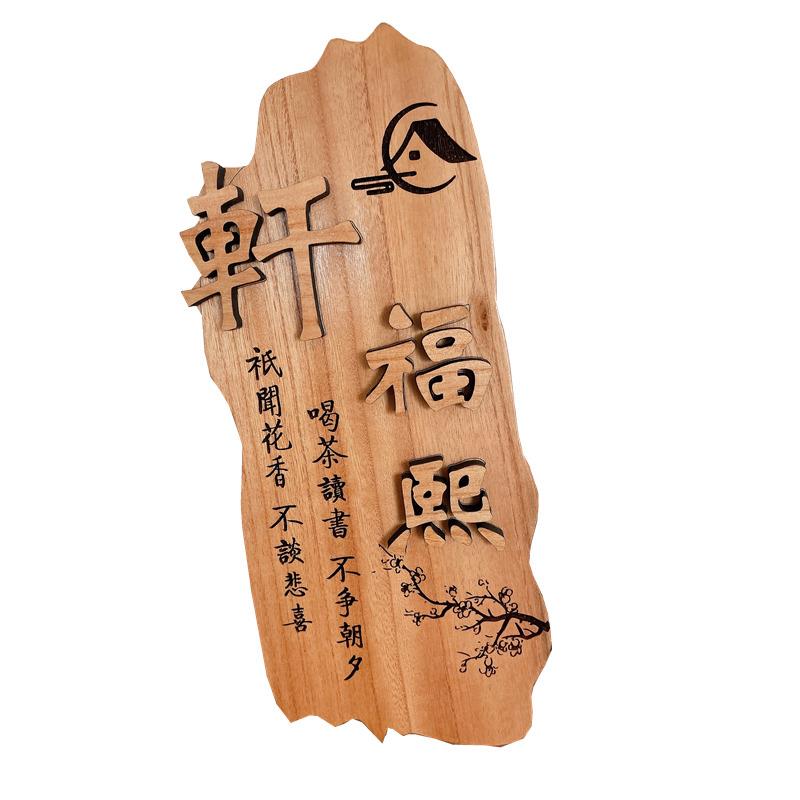 福熙
軒
喝茶讀書 不争朝夕
祇聞花香 不談悲喜